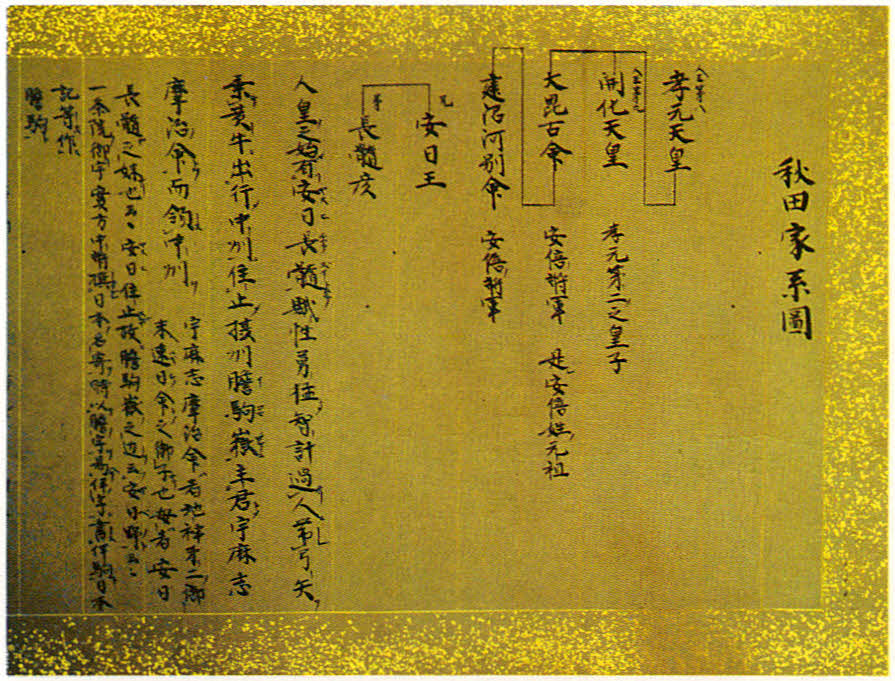 秋田家系圖
人王第八
孝元天皇
人王第九
開化天皇 孝元第二之皇子
大毘古命 安倍將軍 是安倍姓元祖
建沼河別命 安倍將軍
兄
安日王
弟
長髓彦
人皇之始有安日長髓賦性勇猛智計過人帯弓矢
乗黄牛出行中州住止摂州膽駒嶽主君宇麻志
摩治命而領中州
宇麻志摩治命者地神第二御
末速日命之御子也母者安日
長髓之妹也云々安日住止故膽駒嶽之辺云安日野云々
一条院御宇實方中将撰日本名寄時以膽字為伊字書伊駒日本
記等作
膽駒